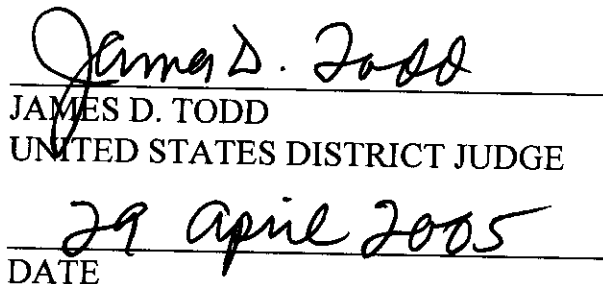 James D. Todd
JAMES D. TODD
UNITED STATES DISTRICT JUDGE
29 April 2005
DATE